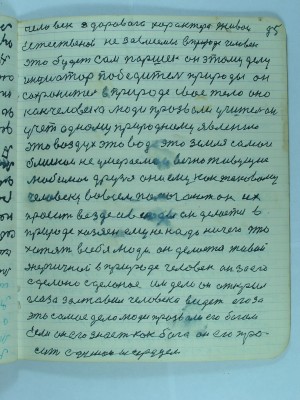 человек здорового характера живой 85
естественой не зависемый в природе человек
это будет сам паршек он этому делу
инциатор победител природы он
сохранител в природе свое тело оно
как человека люди прозвали учител он
учет одному природному явлению
это воздух это вода это земля самои
близкои не умераемои вечно живущие
любимои друзя они ему как таковому
человеку во всем помогают он их
просит везде он делается в
природе хозяен ему не надо ничего это
хотят всебя люды он делается живой
энергичной в природе человек он за его
сделано сделоное им дело он открыл
глаза заставил человека видет его за
это самое дело люди прозвали его богом
Если он его знает как бога он его про-
сит с душою и серцем